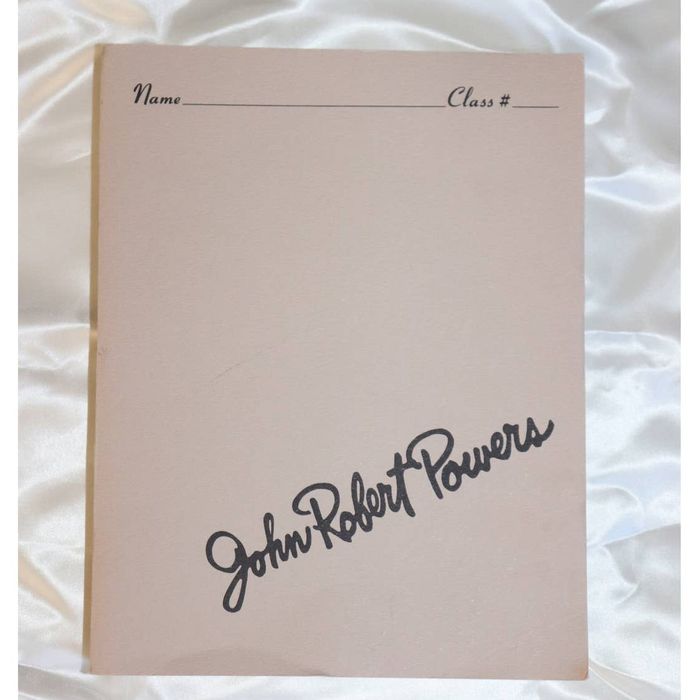 Name____________________Class #____
John Robert Powers